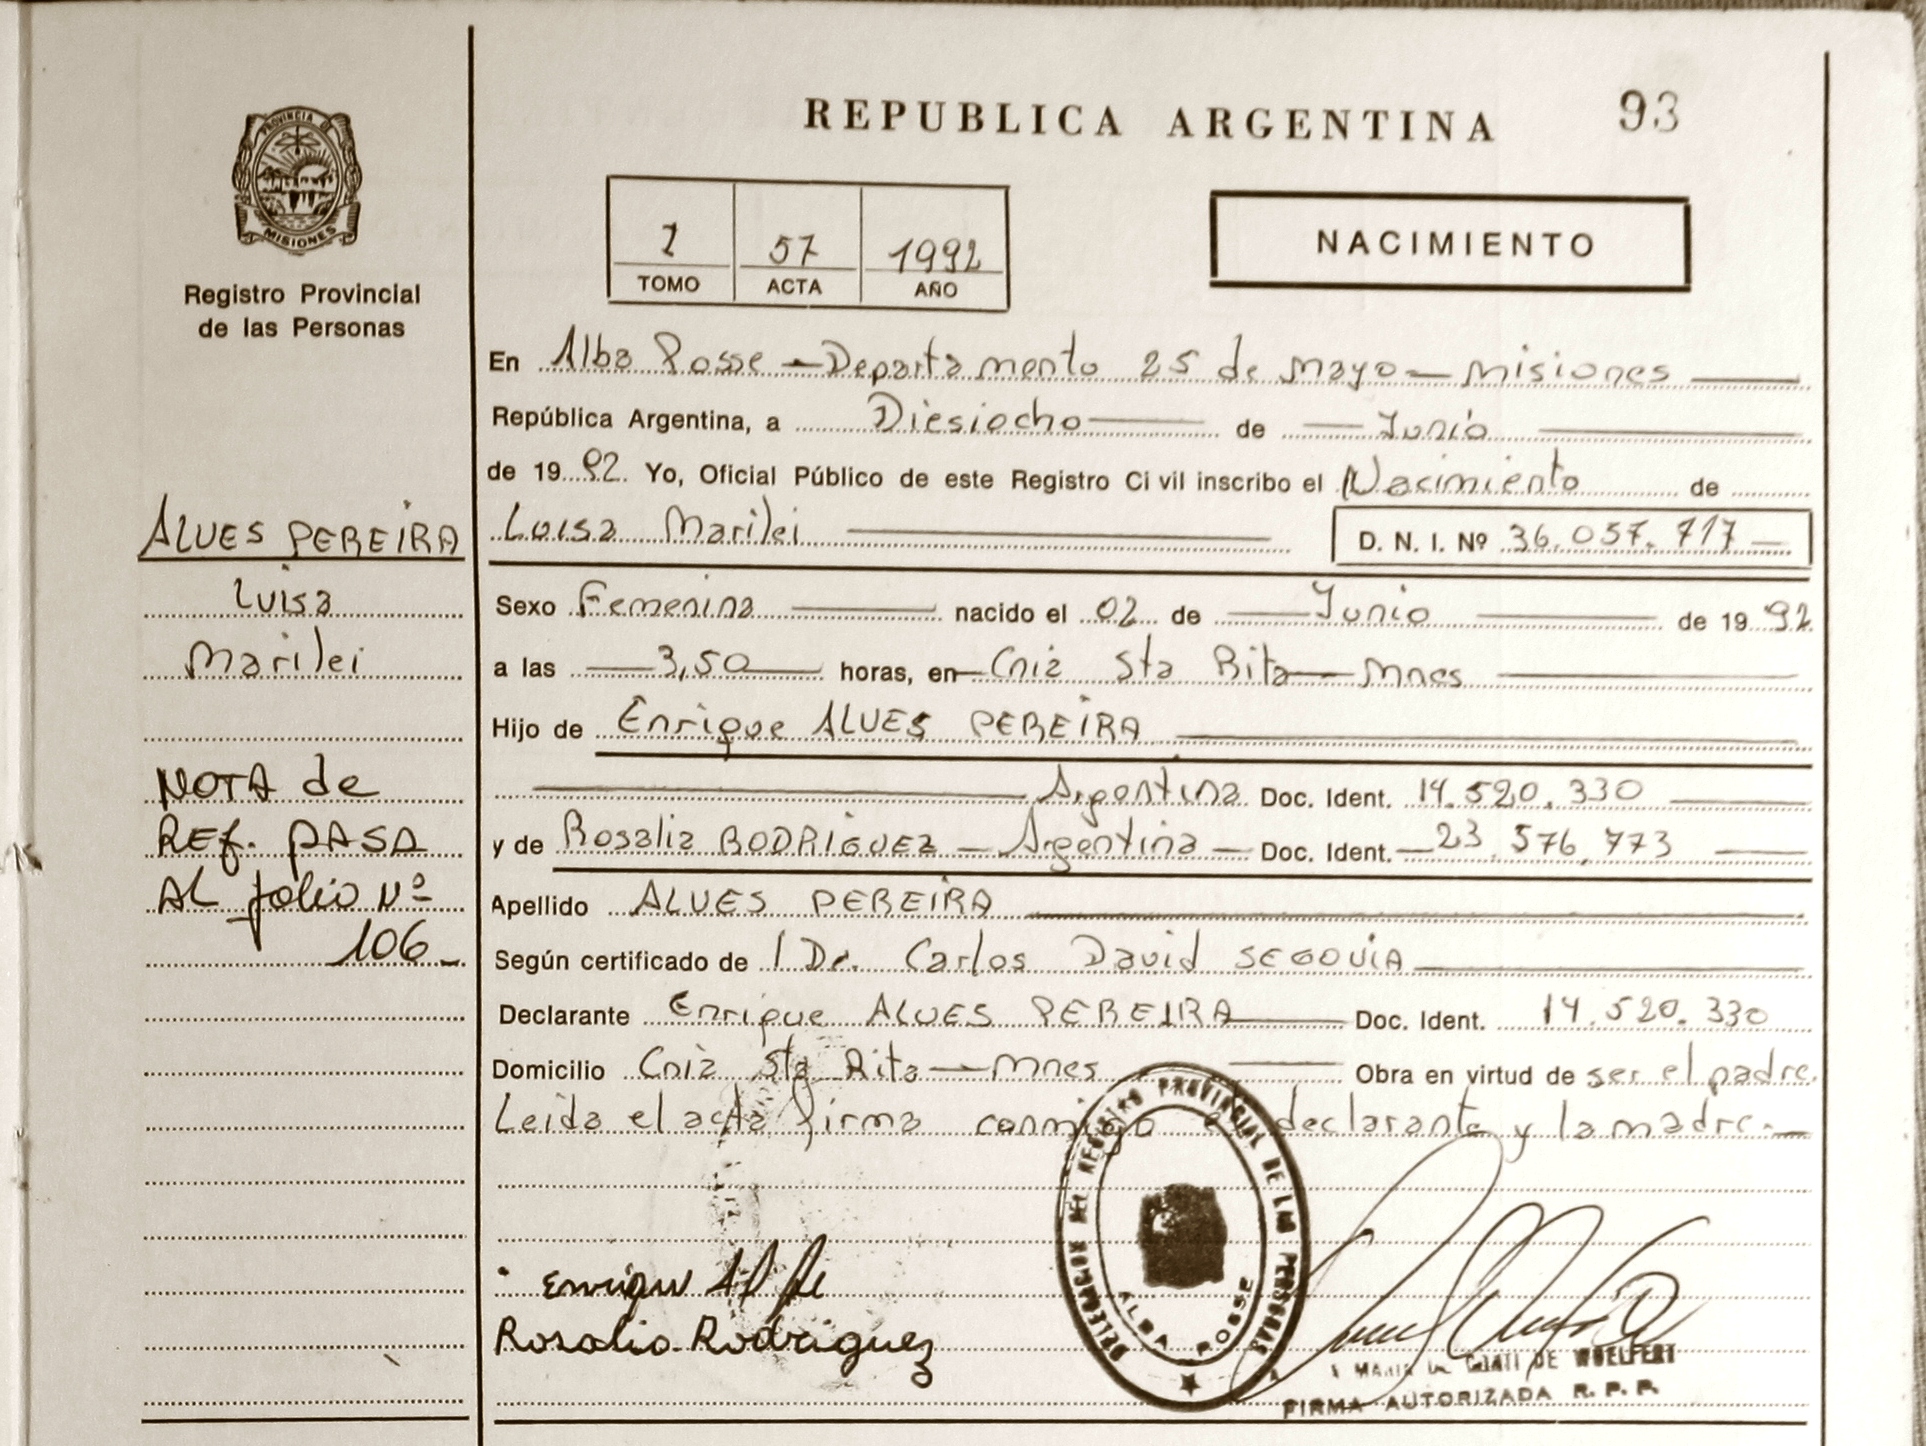 PROVINCIA DE
MISIONES
Registro Provincial
de las Personas
ALVES PEREIRA
Luisa
Marilei
NOTA de
REf. PASA
AL folio Nº
106-
REPUBLICA ARGENTINA 93
1 57 1992
TOMO ACTA AÑO
NACIMIENTO
En Alba Posse - Departamento 25 de Mayo - Misiones
República Argentina, a Diesiocho de Junio
de 1992. Yo, Oficial Público de este Registro Civil inscribo el Nacimiento de
Luisa Marilei D. N. I. Nº 36.057.717
Sexo Femenina nacido el 02 de Junio de 1992
a las 3,50 horas, en Cnia Sta Rita - Mnes
Hijo de Enrique ALVES PEREIRA
Argentina Doc. Ident. 14.520.330
y de Rosalia RODRIGUEZ - Argentina - Doc. Ident. 23.576.773
Apellido ALVES PEREIRA
Según certificado de l Dr. Carlos David SEGOVIA
Declarante Enrique ALVES PEREIRA Doc. Ident. 14.520.330
Domicilio Cnia Sta Rita - Mnes Obra en virtud de ser el padre.
Leida el acta firma conmigo el declarante y la madre.-
DELEGACION DEL REGISTRO PROVINCIAL DE LAS PERSONAS
ALBA POSSE
Enrique
Rosalia Rodriguez
MARIA DE WOELFERT
FIRMA AUTORIZADA R. P. P.